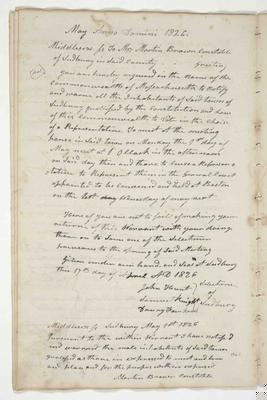 May Anno Domini 1826.
Middlesex ss To Mr Martin Brown Constable
of Sudbury in Said County Greeting
you are hereby required in the Name of the
Commonwealth of Massachusetts to Notify
and warn all the Inhabitants of Said town of
Sudbury qualified by the Constitution and laws
of this Commonwealth to Vote in the Choice
of a Representative. To meet at the meeting
house in Said town on Monday the day of
May next at o Clock in the afternoon
on Said day then and there to choose a Represen
tative to Represent them in the General Court
appointed to be convened and held at Boston
on the last Wednesday of may next
Hereof you are not to fail of making your
return of this Warrant with your doings
thereon to Some one of the Selectmen
previous to the time of Said Meeting
Given under our hand and Seal at Sudbury
this 17th day of April AD 1826
John Hunt Selectmen
Samuel Knight of
Sudbury
Middlesex ss Sudbury May 1st 1826
Pursuant to the within Warrant I have notified
and warned the male inhabitants of Said town
qualified as therein expressed to meet at time
and place and for the purpose within expressed
Martin Brown Constable